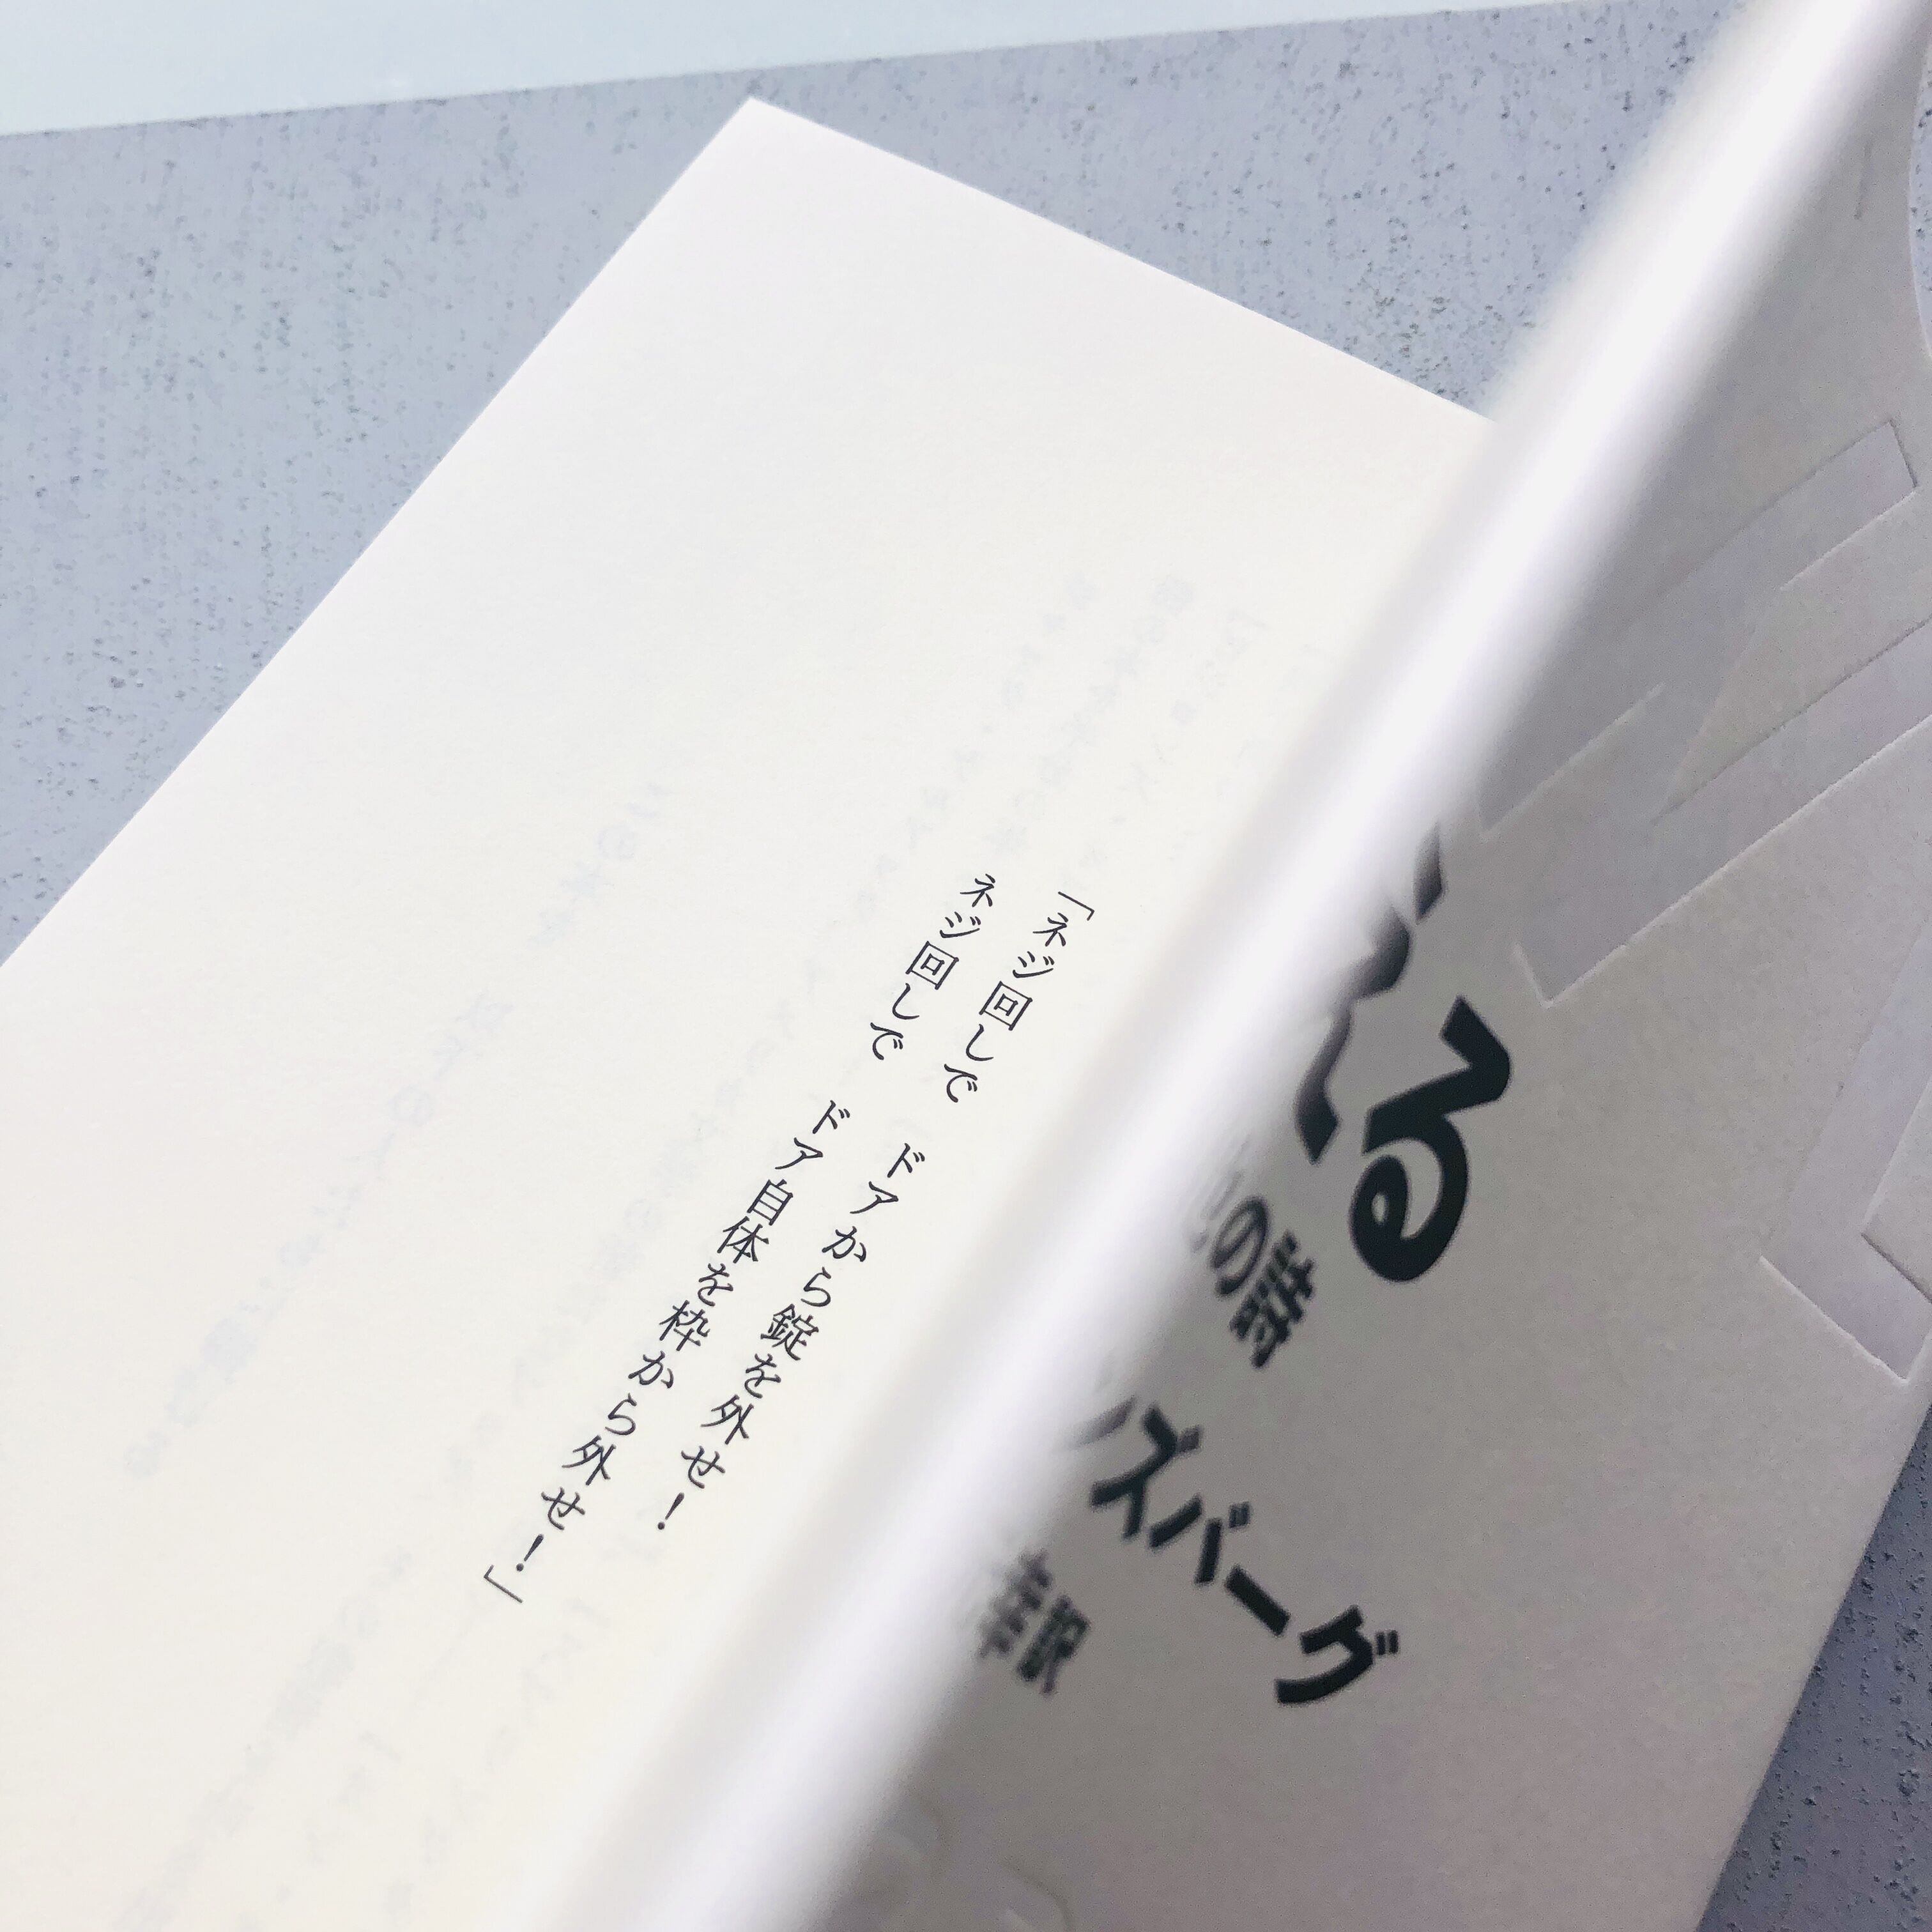 「ネジ回しで　ドアから錠を外せ！
ネジ回しで　ドア自体を枠から外せ！」
える
の詩
ズバーグ
幸訳